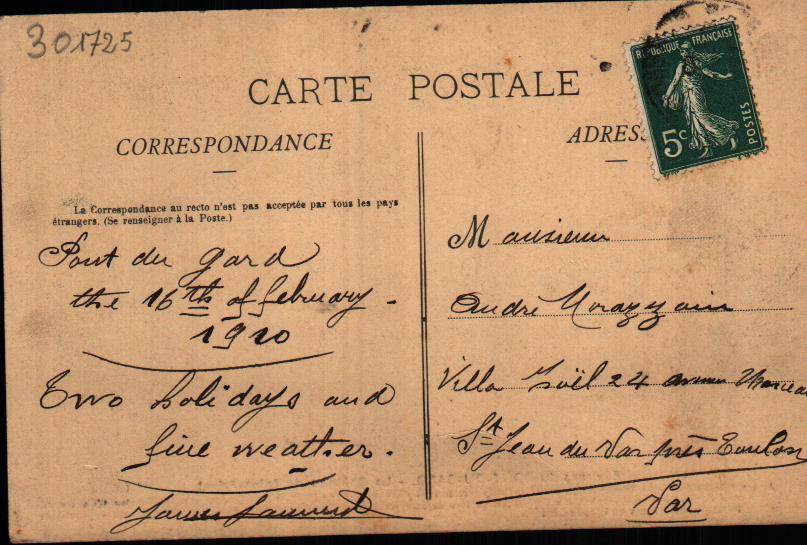 301725
CARTE POSTALE
RÉPUBLIQUE FRANÇAISE
5c
POSTES
CORRESPONDANCE
La Correspondance au recto n'est pas acceptée par tous les pays
étrangers. (Se renseigner à la Poste.)
Pont du gard
the 16th of february.
1910
Two holidays and
fine weather.
ADRES
Monsieur
André
Villa Joël 24 avenue
St Jean du Var près Toulon
Var